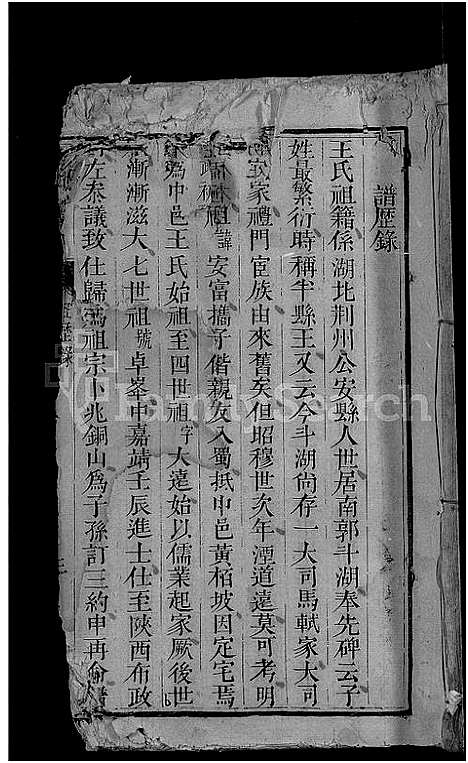 譜歷錄
王氏祖籍係湖北荆州公安縣人世居南郭斗湖奉先碑云子
姓最繁衍時稱半縣王又云今斗湖尚存一大司馬軾家大司
家禮門宦族由來舊矣但昭穆世次年湮道遠莫可考明
祖諱安富攜子偕親友入蜀抵中邑黃栢坡因定宅焉
為中邑王氏始祖至四世祖字大遠始以儒業起家厥後世
漸漸滋大七世祖號卓峯中嘉靖壬辰進士仕至陝西布政
左叅議致仕歸為祖宗卜兆銅山為子孫訂三約申再
FamilySearch